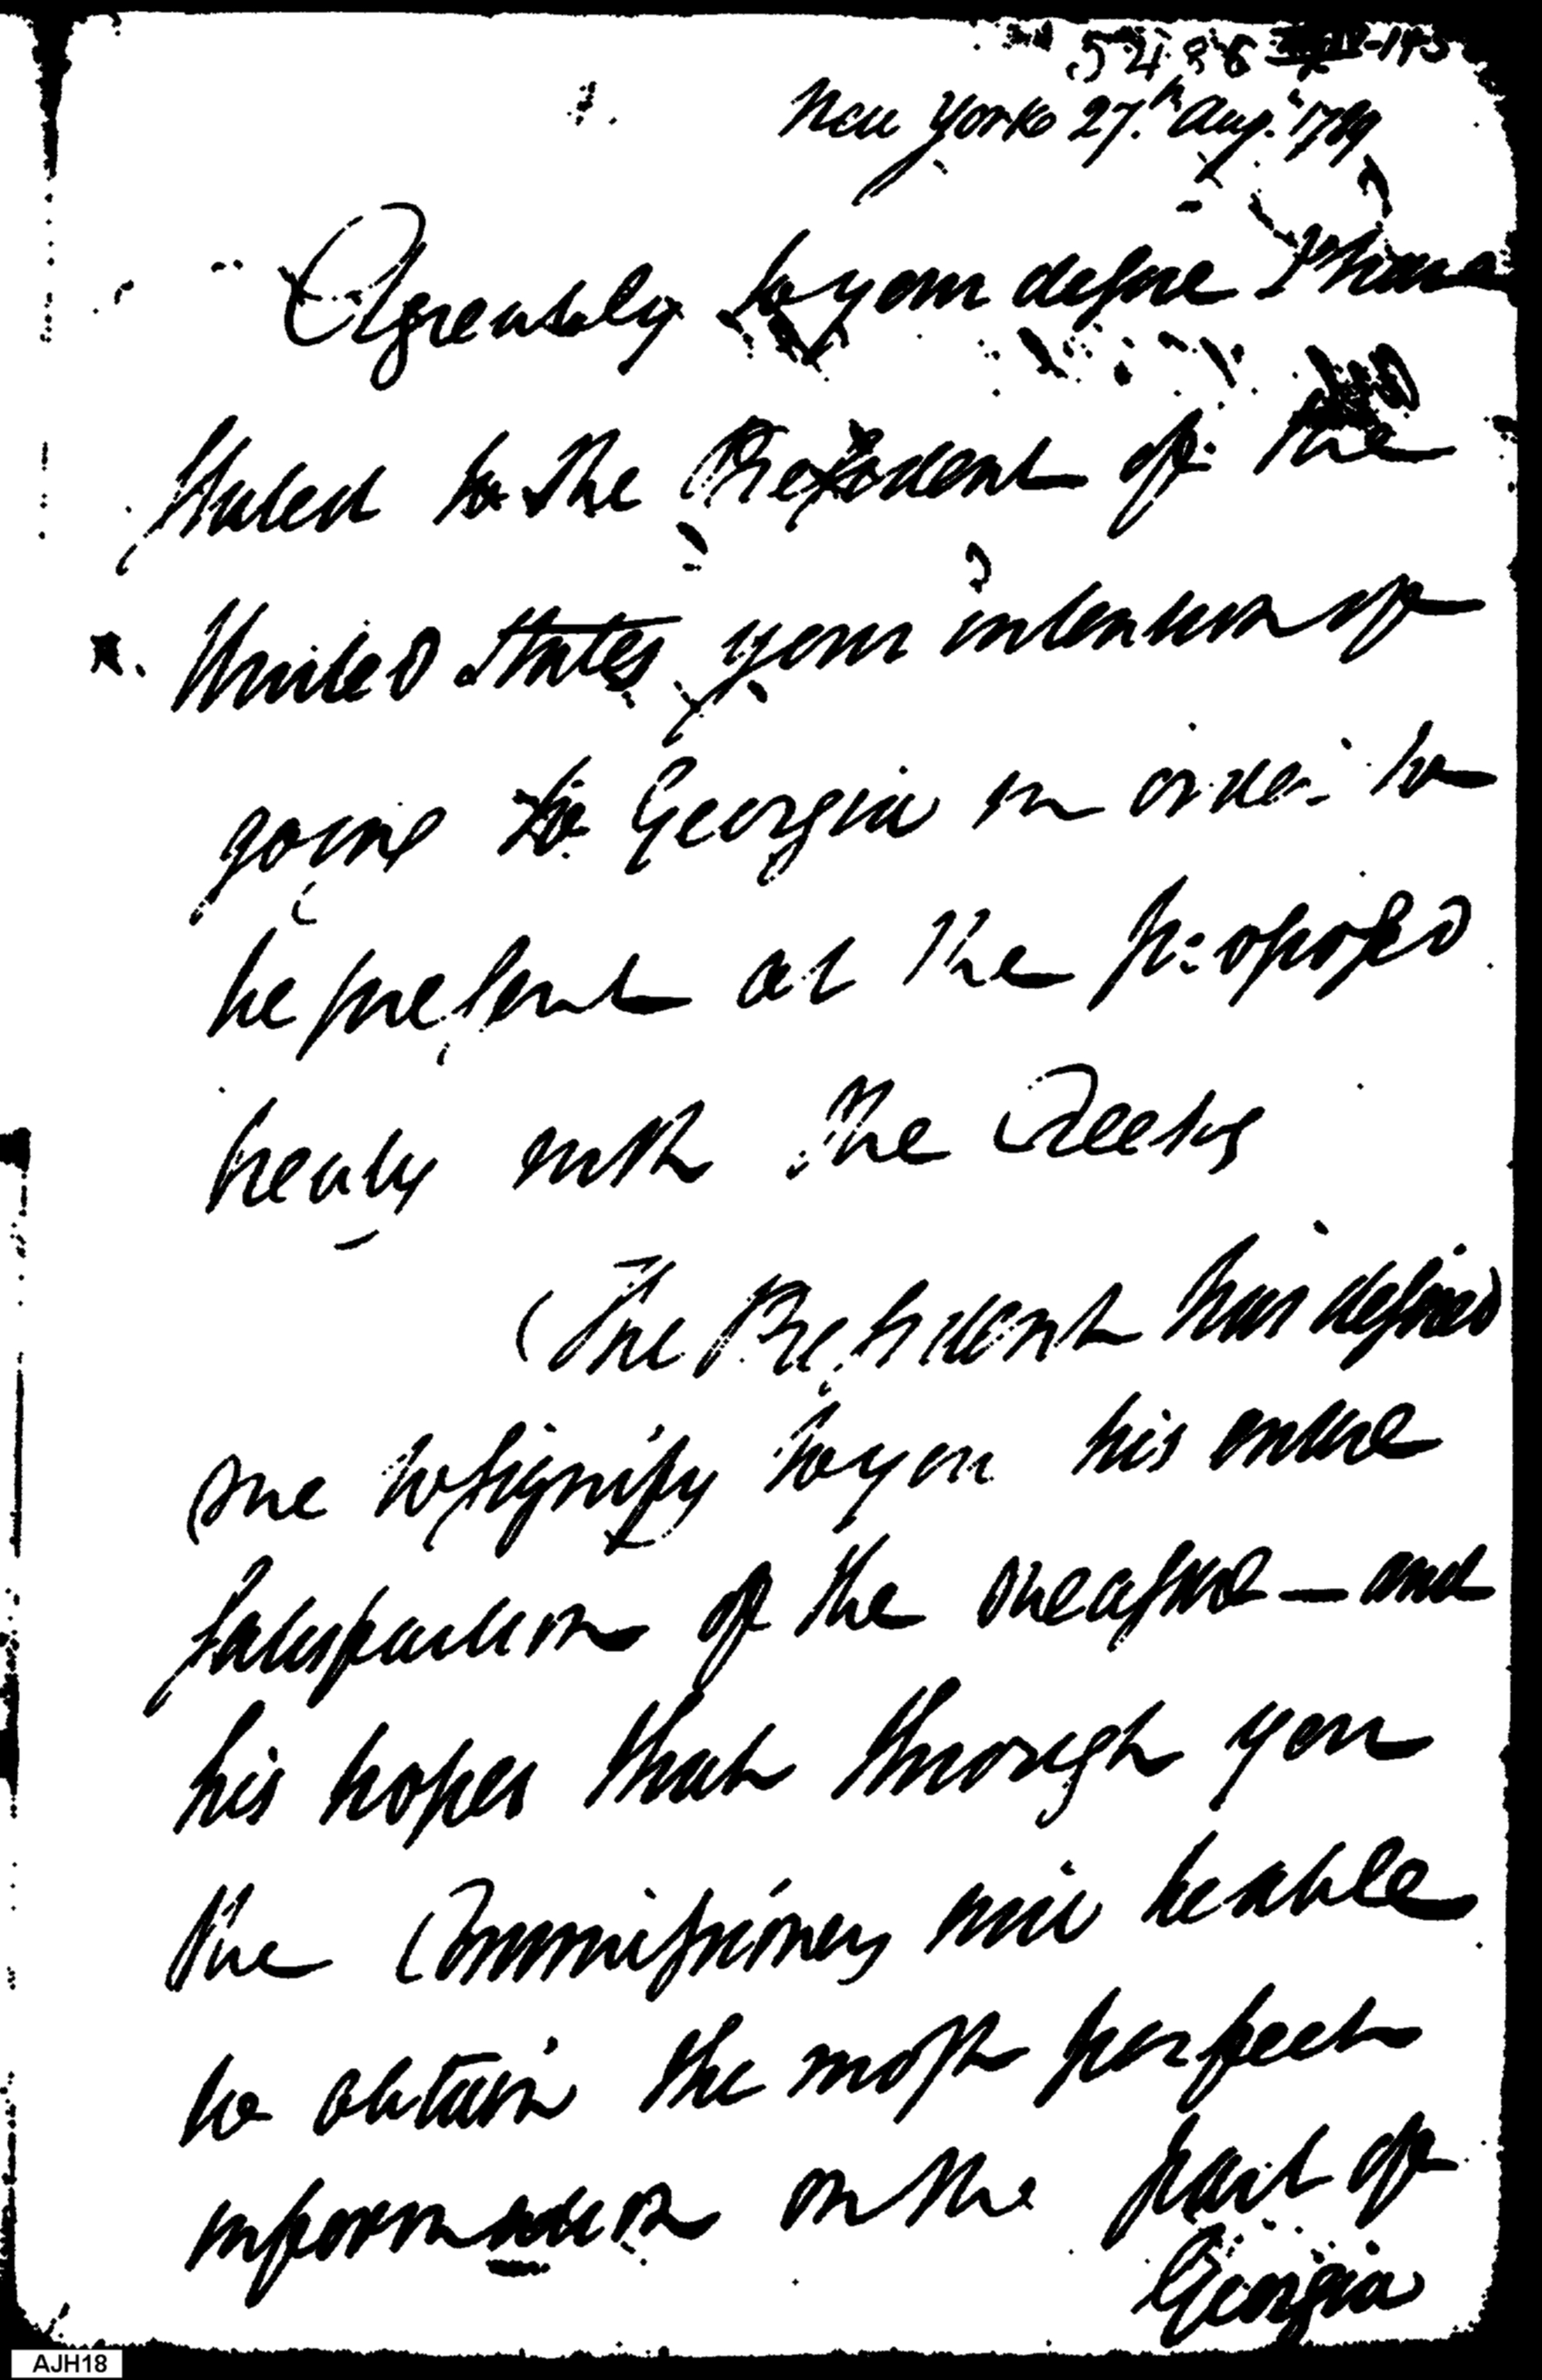 New York 27th Aug. 1789
Agreeably to your desire I have
stated to the President of the
United States your intention of
going to Georgia in order to
be present at the proposed
treaty with the Creeks
The President has desired
me to signify to you his entire
satisfaction of the measure — and
his hopes that through you
the Commissioners will be able
to obtain the most perfect
information on the part of
Georgia
AJH18